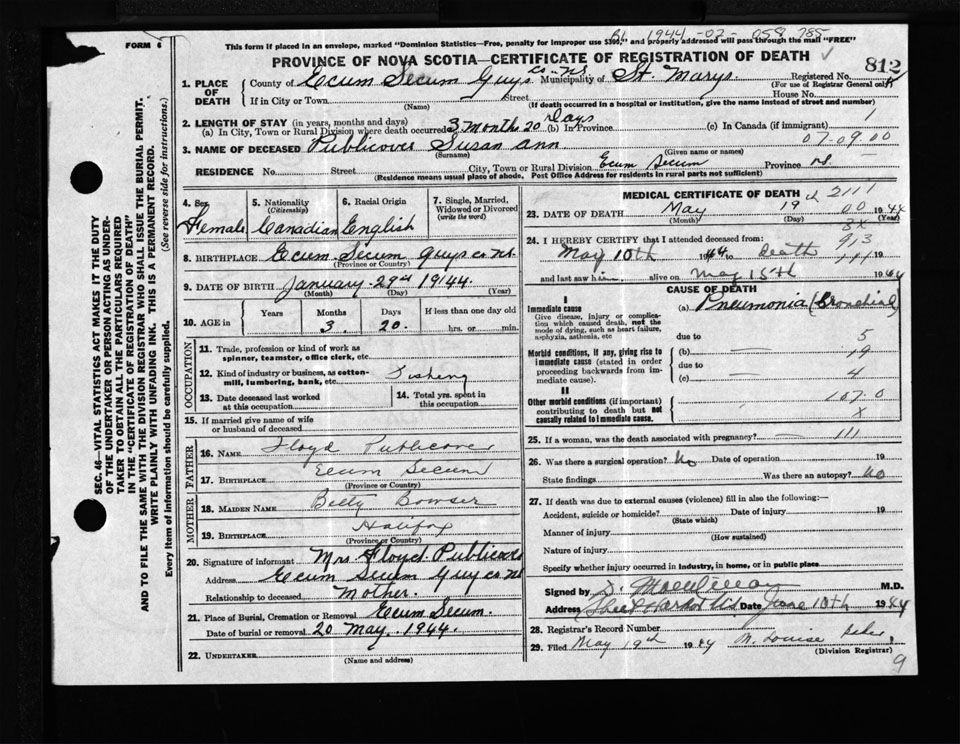 FORM 6
This form if placed in an envelope, marked "Dominion Statistics—Free, penalty for improper use $300," and properly addressed will pass through the mail "FREE"
1944 -02- 058 785
PROVINCE OF NOVA SCOTIA—CERTIFICATE OF REGISTRATION OF DEATH
812
1. PLACE OF DEATH
County of Ecum Secum Guys co. NS Municipality of St. Marys Registered No.
(For use of Registrar General only)
If in City or Town (Name) Street House No.
(If death occurred in a hospital or institution, give the name instead of street and number)
2. LENGTH OF STAY (in years, months and days)
(a) In City, Town or Rural Division where death occurred 3 months 20 Days (b) In Province (c) In Canada (if immigrant) 1
07-09.00
3. NAME OF DECEASED Publicover Susan ann
(Surname) (Given name or names)
RESIDENCE No. Street City, Town or Rural Division Ecum Secum Province NS
(Residence means usual place of abode. Post Office Address for residents in rural parts not sufficient)
4. Sex Female
5. Nationality (Citizenship) Canadian
6. Racial Origin English
7. Single, Married, Widowed or Divorced (write the word)
8. BIRTHPLACE Ecum Secum Guys co NS.
(Province or Country)
9. DATE OF BIRTH January 29st 1944.
(Month) (Day) (Year)
10. AGE in Years Months Days If less than one day old
3. 20. hrs. or min.
OCCUPATION
11. Trade, profession or kind of work as spinner, teamster, office clerk, etc.
12. Kind of industry or business, as cotton-mill, lumbering, bank, etc. Fisheng
13. Date deceased last worked at this occupation
14. Total yrs. spent in this occupation
15. If married give name of wife or husband of deceased
FATHER
16. NAME Floyd Publicover
17. BIRTHPLACE Ecum Secum
(Province or Country)
MOTHER
18. MAIDEN NAME Betty Bowser
19. BIRTHPLACE Halifax
(Province or Country)
20. Signature of informant Mrs Floyd Publicover
Address Ecum Secum Guy co NS
Relationship to deceased Mother.
21. Place of Burial, Cremation or Removal Ecum Secum.
Date of burial or removal 20 May. 1944.
22. UNDERTAKER
(Name and address)
MEDICAL CERTIFICATE OF DEATH
2111
23. DATE OF DEATH May 19th 00 1944
(Month) (Day) (Year)
3x
24. I HEREBY CERTIFY that I attended deceased from: 913
May 10th 1944 to Death 111 19
and last saw him alive on May 15th 1944
CAUSE OF DEATH
I
Immediate cause
Give disease, injury or complication which caused death, not the mode of dying, such as heart failure, asphyxia, asthenia, etc.
(a) Pneumonia (Bronchial)
due to 5
Morbid conditions, if any, giving rise to immediate cause (stated in order proceeding backwards from immediate cause).
(b) — 19
due to
(c) — 4
II
Other morbid conditions (if important) contributing to death but not causally related to immediate cause.
107.0
X
25. If a woman, was the death associated with pregnancy? — 111
26. Was there a surgical operation? No Date of operation 19
State findings Was there an autopsy? No
27. If death was due to external causes (violence) fill in also the following:—
Accident, suicide or homicide? Date of injury 19
(State which)
Manner of injury
(How sustained)
Nature of injury
Specify whether injury occurred in industry, in home, or in public place
Signed by M.D.
Address Sheet Harbor NS Date June 10th 1944
28. Registrar's Record Number
29. Filed May 19th 1944 M. Louise
(Division Registrar)
9
SEC. 46—VITAL STATISTICS ACT MAKES IT THE DUTY
OF THE UNDERTAKER OR PERSON ACTING AS UNDER-
TAKER TO OBTAIN ALL THE PARTICULARS REQUIRED
IN THE "CERTIFICATE OF REGISTRATION OF DEATH"
AND TO FILE THE SAME WITH THE DIVISION REGISTRAR WHO SHALL ISSUE THE BURIAL PERMIT.
WRITE PLAINLY WITH UNFADING INK. THIS IS A PERMANENT RECORD.
Every item of information should be carefully supplied. (See reverse side for instructions.)